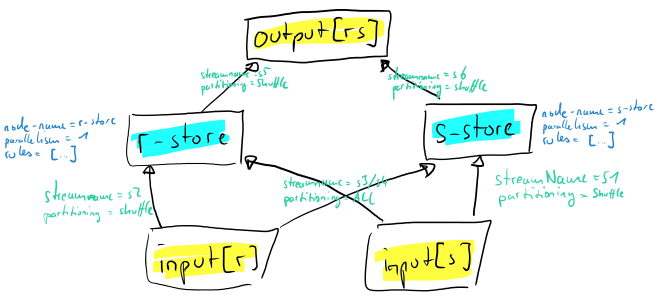 output[rs]
streamname=s5
partitioning=Shuffle
streamname=s6
partitioning=shuffle
node-name=r-store
parallelism=1
rules=[...]
r-store
s-store
node-name=s-store
parallelism=1
rules=[...]
streamname=s2
partitioning=shuffle
streamname=s3/s4
partitioning=ALL
streamName=S1
partitioning=Shuffle
input[r]
input[s]